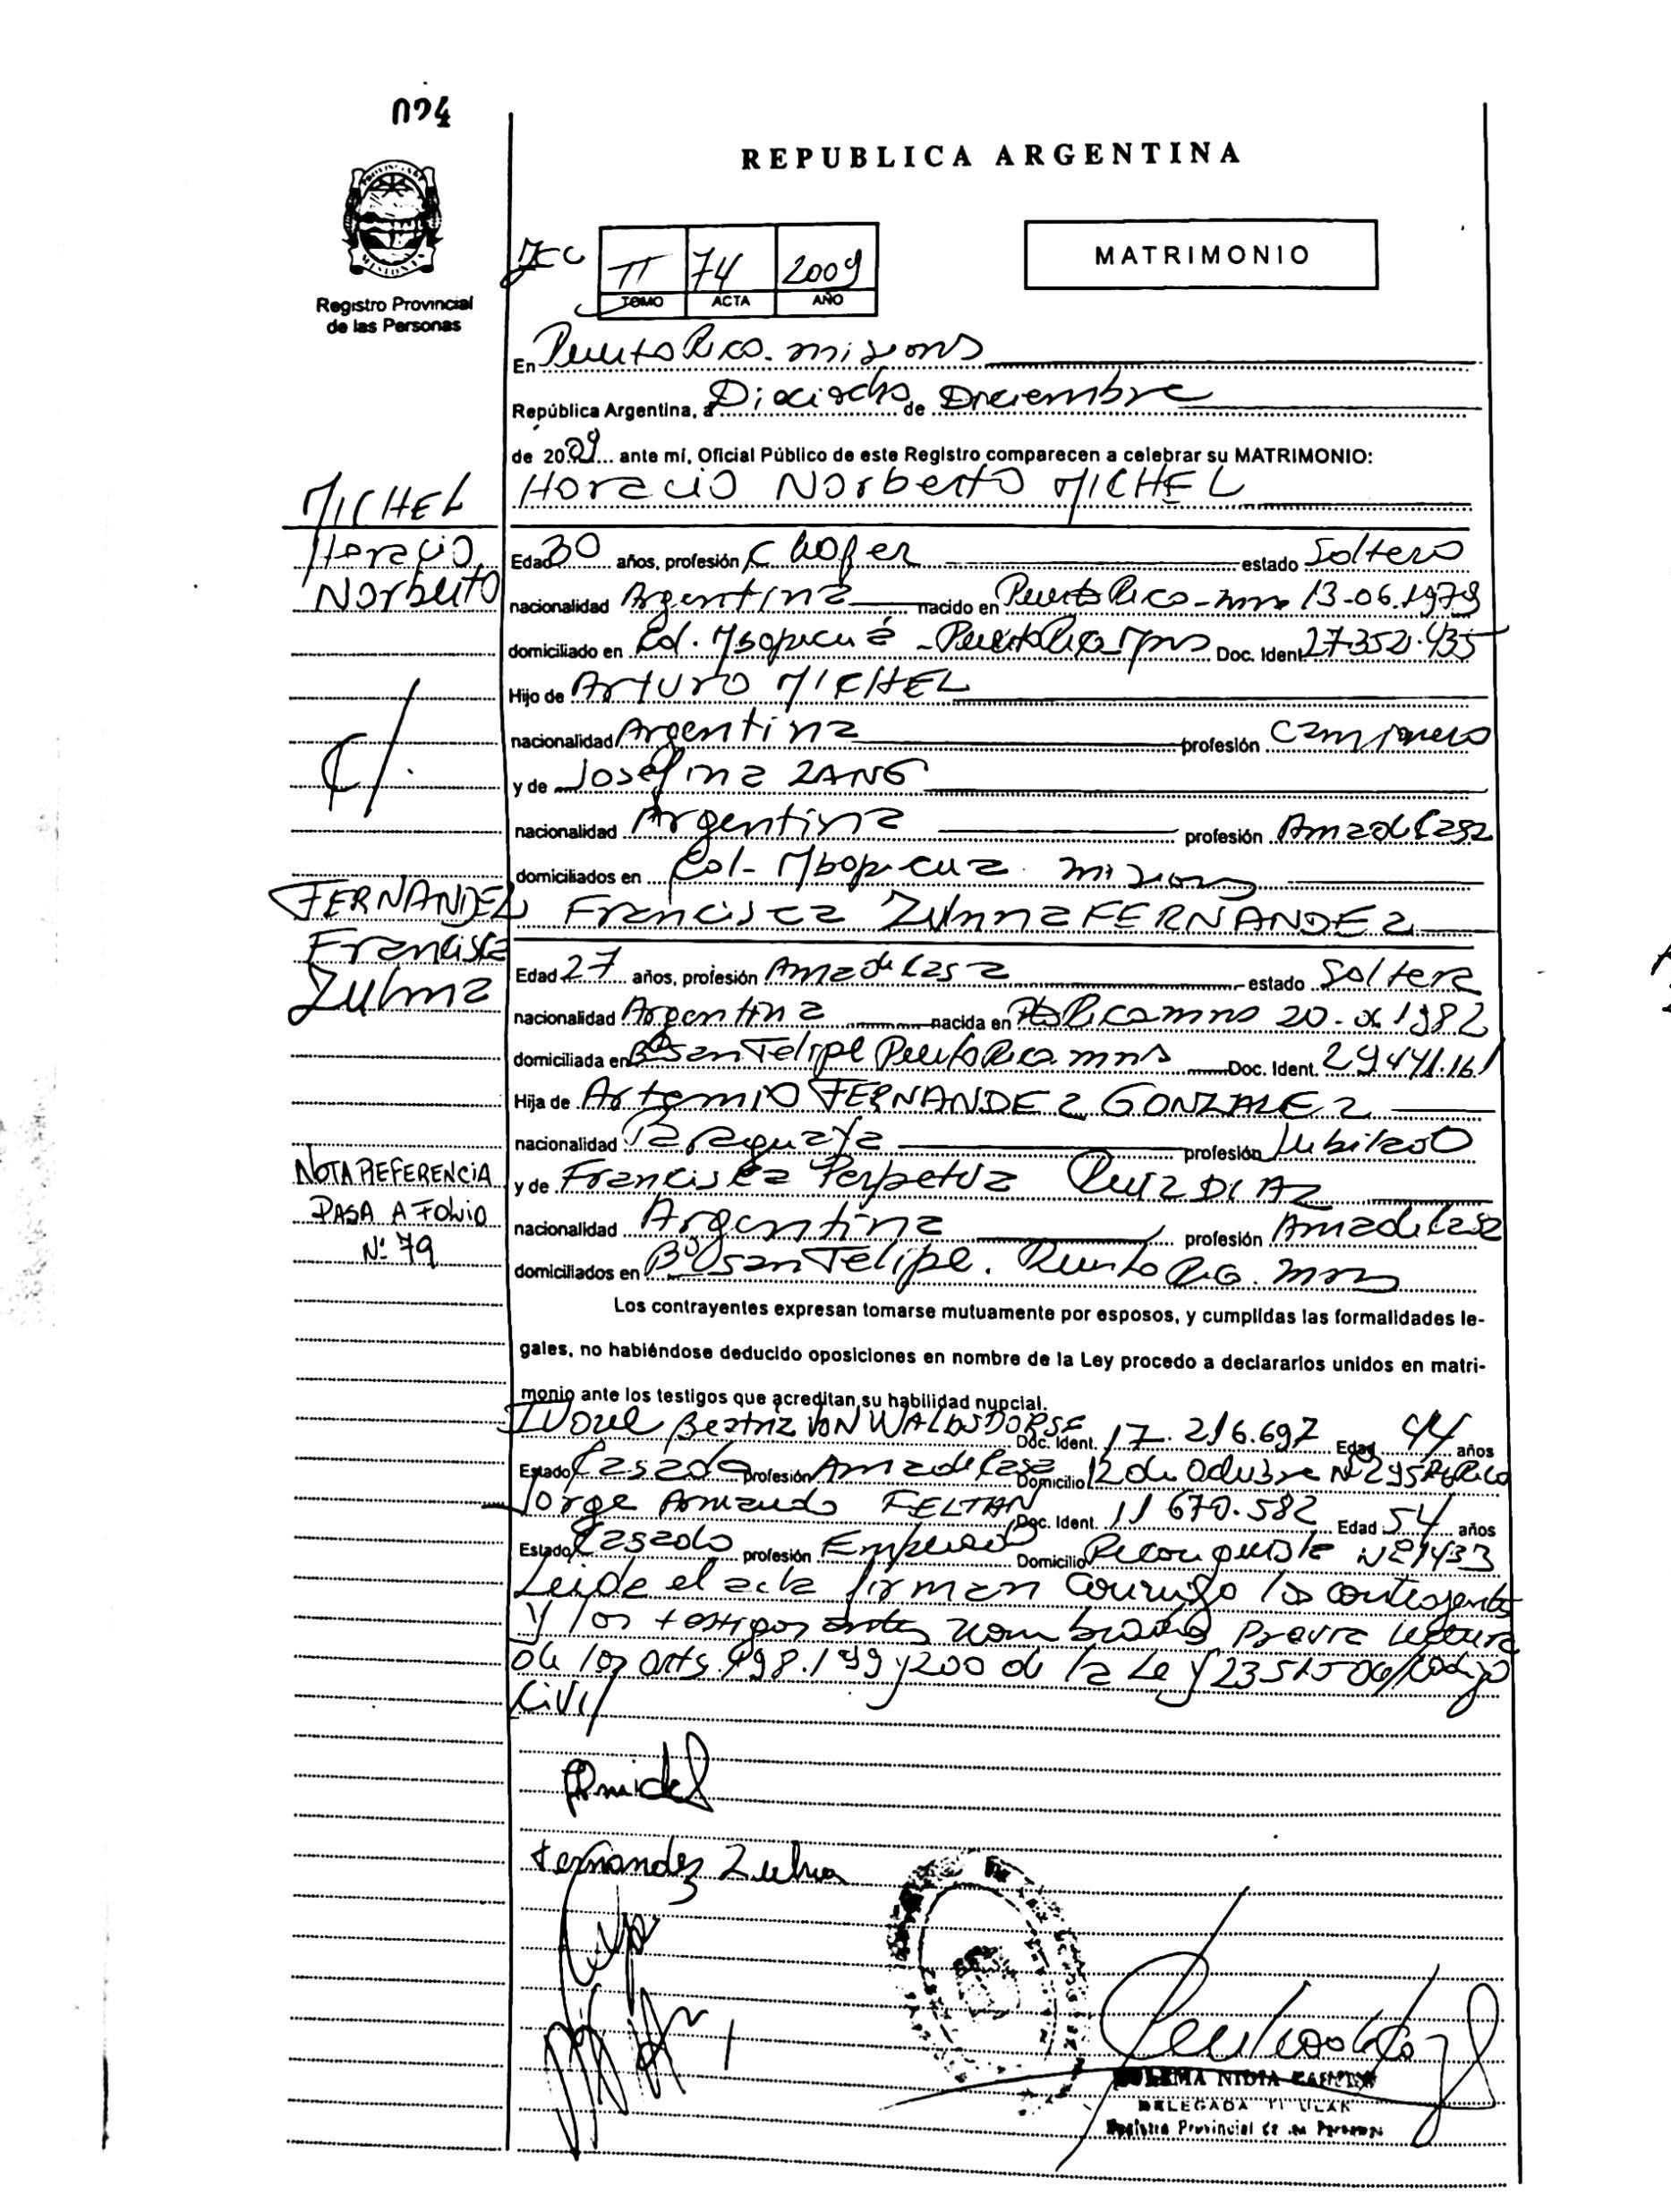 074
REPUBLICA ARGENTINA
MISIONES
Registro Provincial
de las Personas
II 74 2009
TOMO ACTA AÑO
MATRIMONIO
En Puerto Rico. misiones
República Argentina, a Dieciocho de Diciembre
de 2009 ante mí, Oficial Público de este Registro comparecen a celebrar su MATRIMONIO:
MICHEL
Horacio
Norberto
Horacio Norberto MICHEL
Edad 30 años, profesión Chofer estado Soltero
nacionalidad Argentina nacido en Puerto Rico - mns 13-06.1979
domiciliado en Col. Mbopicuá - Puerto Rico mns Doc. Ident. 27.352.435
Hijo de Arturo MICHEL
nacionalidad Argentina profesión Camionero
y de Josefina ZANG
nacionalidad Argentina profesión Ama de Casa
domiciliados en Col. Mbopicua. misiones
c/.
FERNANDEZ
Francisca
Zulma
Francisca Zulma FERNANDEZ
Edad 27 años, profesión Ama de Casa estado Soltera
nacionalidad Argentina nacida en Pto Rico mns 20. 1982
domiciliada en Bº San Felipe Puerto Rico. mns Doc. Ident. 29.441.161
Hija de Artemio FERNANDEZ GONZALEZ
nacionalidad Paraguaya profesión Jubilado
y de Francisca Perpetua RUIZ DIAZ
nacionalidad Argentina profesión Ama de Casa
domiciliados en Bº San Felipe. Puerto Rico. mns
NOTA REFERENCIA
PASA A FOLIO
Nº 79
Los contrayentes expresan tomarse mutuamente por esposos, y cumplidas las formalidades le-
gales, no habiéndose deducido oposiciones en nombre de la Ley procedo a declararlos unidos en matri-
monio ante los testigos que acreditan su habilidad nupcial.
Beatriz VON WALDSDORSF Doc. Ident. 17.216.697 Edad 44 años
Estado Casada profesión Ama de Casa Domicilio 12 de Octubre Nº 295 Pto Rico
Jorge Armando FELTAN Doc. Ident. 11 670.582 Edad 54 años
Estado Casado profesión Empleado Domicilio Reconquista Nº 1433
Leida el acta firman conmigo los contrayentes
y los testigos antes nombrados previa lectura
de los arts. 198.199 y 200 de la Ley 23515 del Codigo
Civil
Fernandez Zulma
NIDIA
DELEGADA TITULAR
Registro Provincial de las Personas